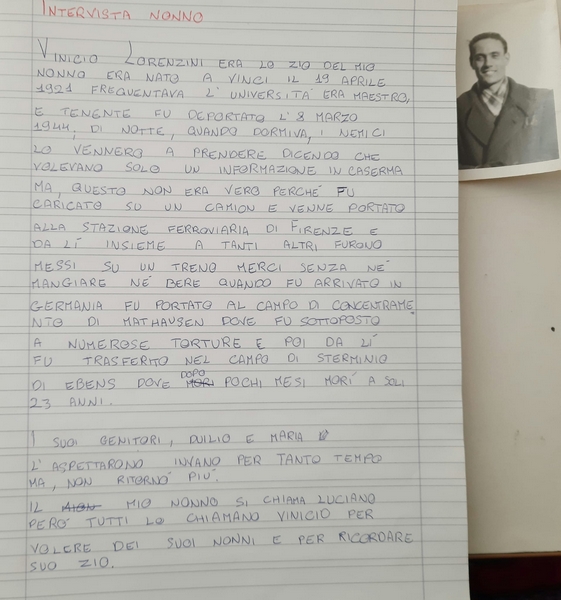 INTERVISTA NONNO
VINICIO LORENZINI ERA LO ZIO DEL MIO
NONNO ERA NATO A VINCI IL 19 APRILE
1921 FREQUENTAVA L'UNIVERSITÀ ERA MAESTRO,
E TENENTE FU DEPORTATO L'8 MARZO
1944, DI NOTTE, QUANDO DORMIVA, I NEMICI
LO VENNERO A PRENDERE DICENDO CHE
VOLEVANO SOLO UN INFORMAZIONE IN CASERMA
MA, QUESTO NON ERA VERO PERCHÉ FU
CARICATO SU UN CAMION E VENNE PORTATO
ALLA STAZIONE FERROVIARIA DI FIRENZE E
DA LÍ INSIEME A TANTI ALTRI FURONO
MESSI SU UN TRENO MERCI SENZA NÉ
MANGIARE NÉ BERE QUANDO FU ARRIVATO IN
GERMANIA FU PORTATO AL CAMPO DI CONCENTRAME
NTO DI MATHAUSEN DOVE FU SOTTOPOSTO
A NUMEROSE TORTURE E POI DA LÍ
FU TRASFERITO NEL CAMPO DI STERMINIO
DI EBENS DOVE DOPO POCHI MESI MORÍ A SOLI
23 ANNI.
I SUOI GENITORI, DUILIO E MARIA
L'ASPETTARONO INVANO PER TANTO TEMPO
MA, NON RITORNO' PIU'.
IL MIO NONNO SI CHIAMA LUCIANO
PERO' TUTTI LO CHIAMANO VINICIO PER
VOLERE DEI SUOI NONNI E PER RICORDARE
SUO ZIO.